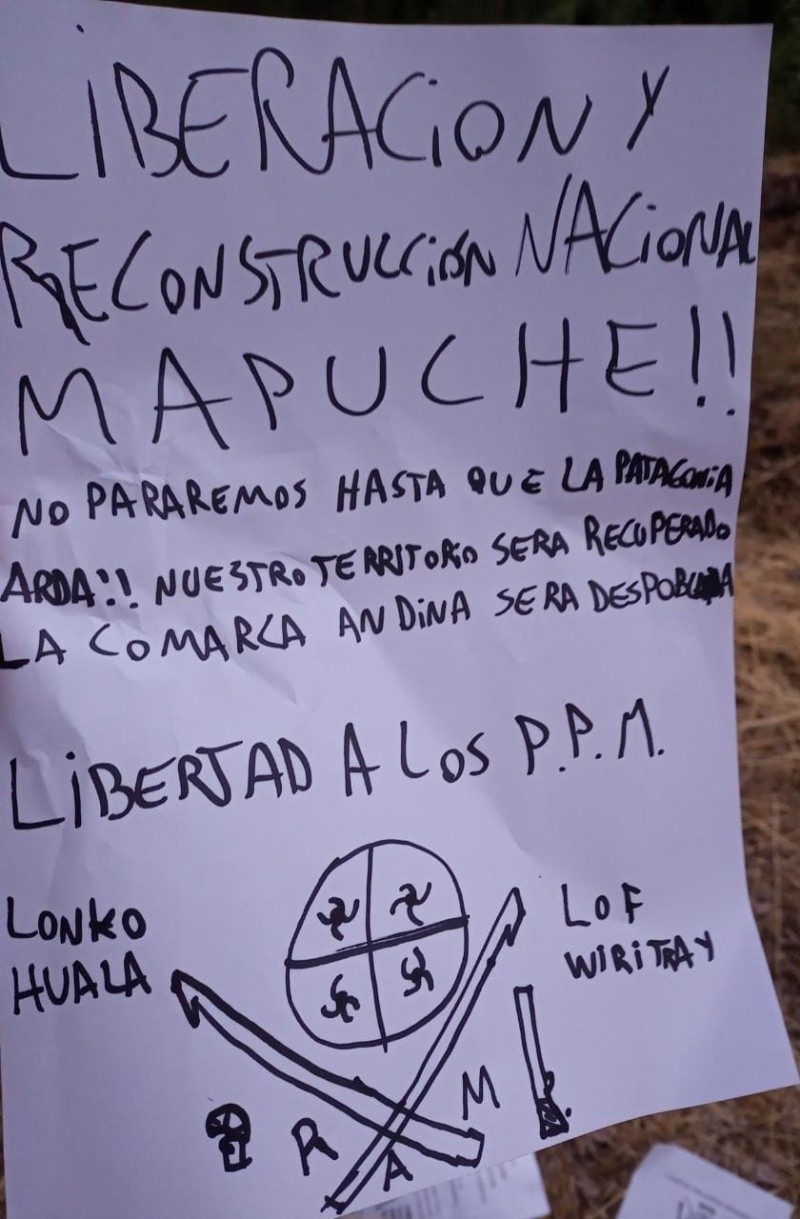 LIBERACION Y
RECONSTRUCCIÓN NACIONAL
MAPUCHE!!
NO PARAREMOS HASTA QUE LA PATAGONIA
ARDA!! NUESTRO TERRITORIO SERA RECUPERADO
LA COMARCA ANDINA SERA DESPOBLADA
LIBERTAD A LOS P.P.M.
LONKO
HUALA
LOF
WIRITRAY
R A M